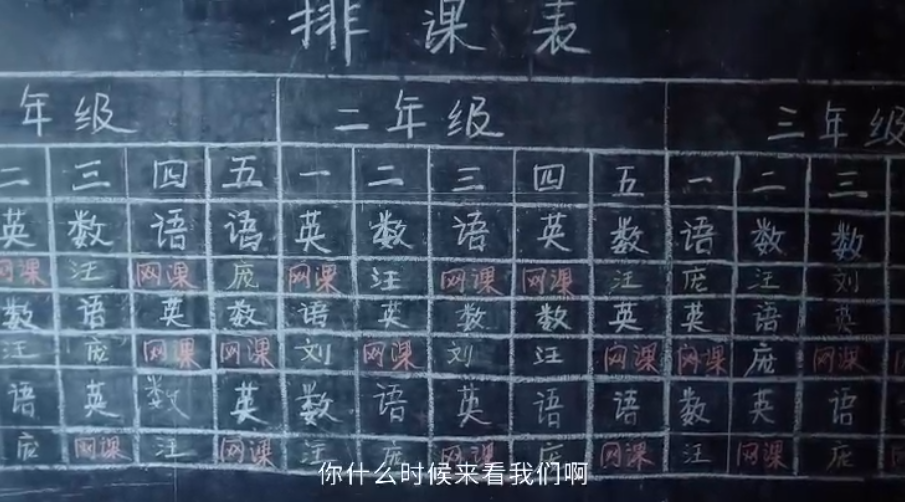 排课表
年级 二年级 三年级
二 三 四 五 一 二 三 四 五 一 二 三
英 数 语 语 英 数 语 英 数 语 数 数
网课 汪 网课 庞 网课 汪 网课 网课 汪 庞 汪 刘
数 语 英 数 语 英 数 数 英 英 语 英
汪 庞 网课 网课 刘 网课 刘 汪 网课 网课 庞 网课
语 英 数 英 数 语 英 语 语 数 英 语
庞 网课 汪 网课 汪 庞 网课 庞 网课 汪 网课 庞
你什么时候来看我们啊